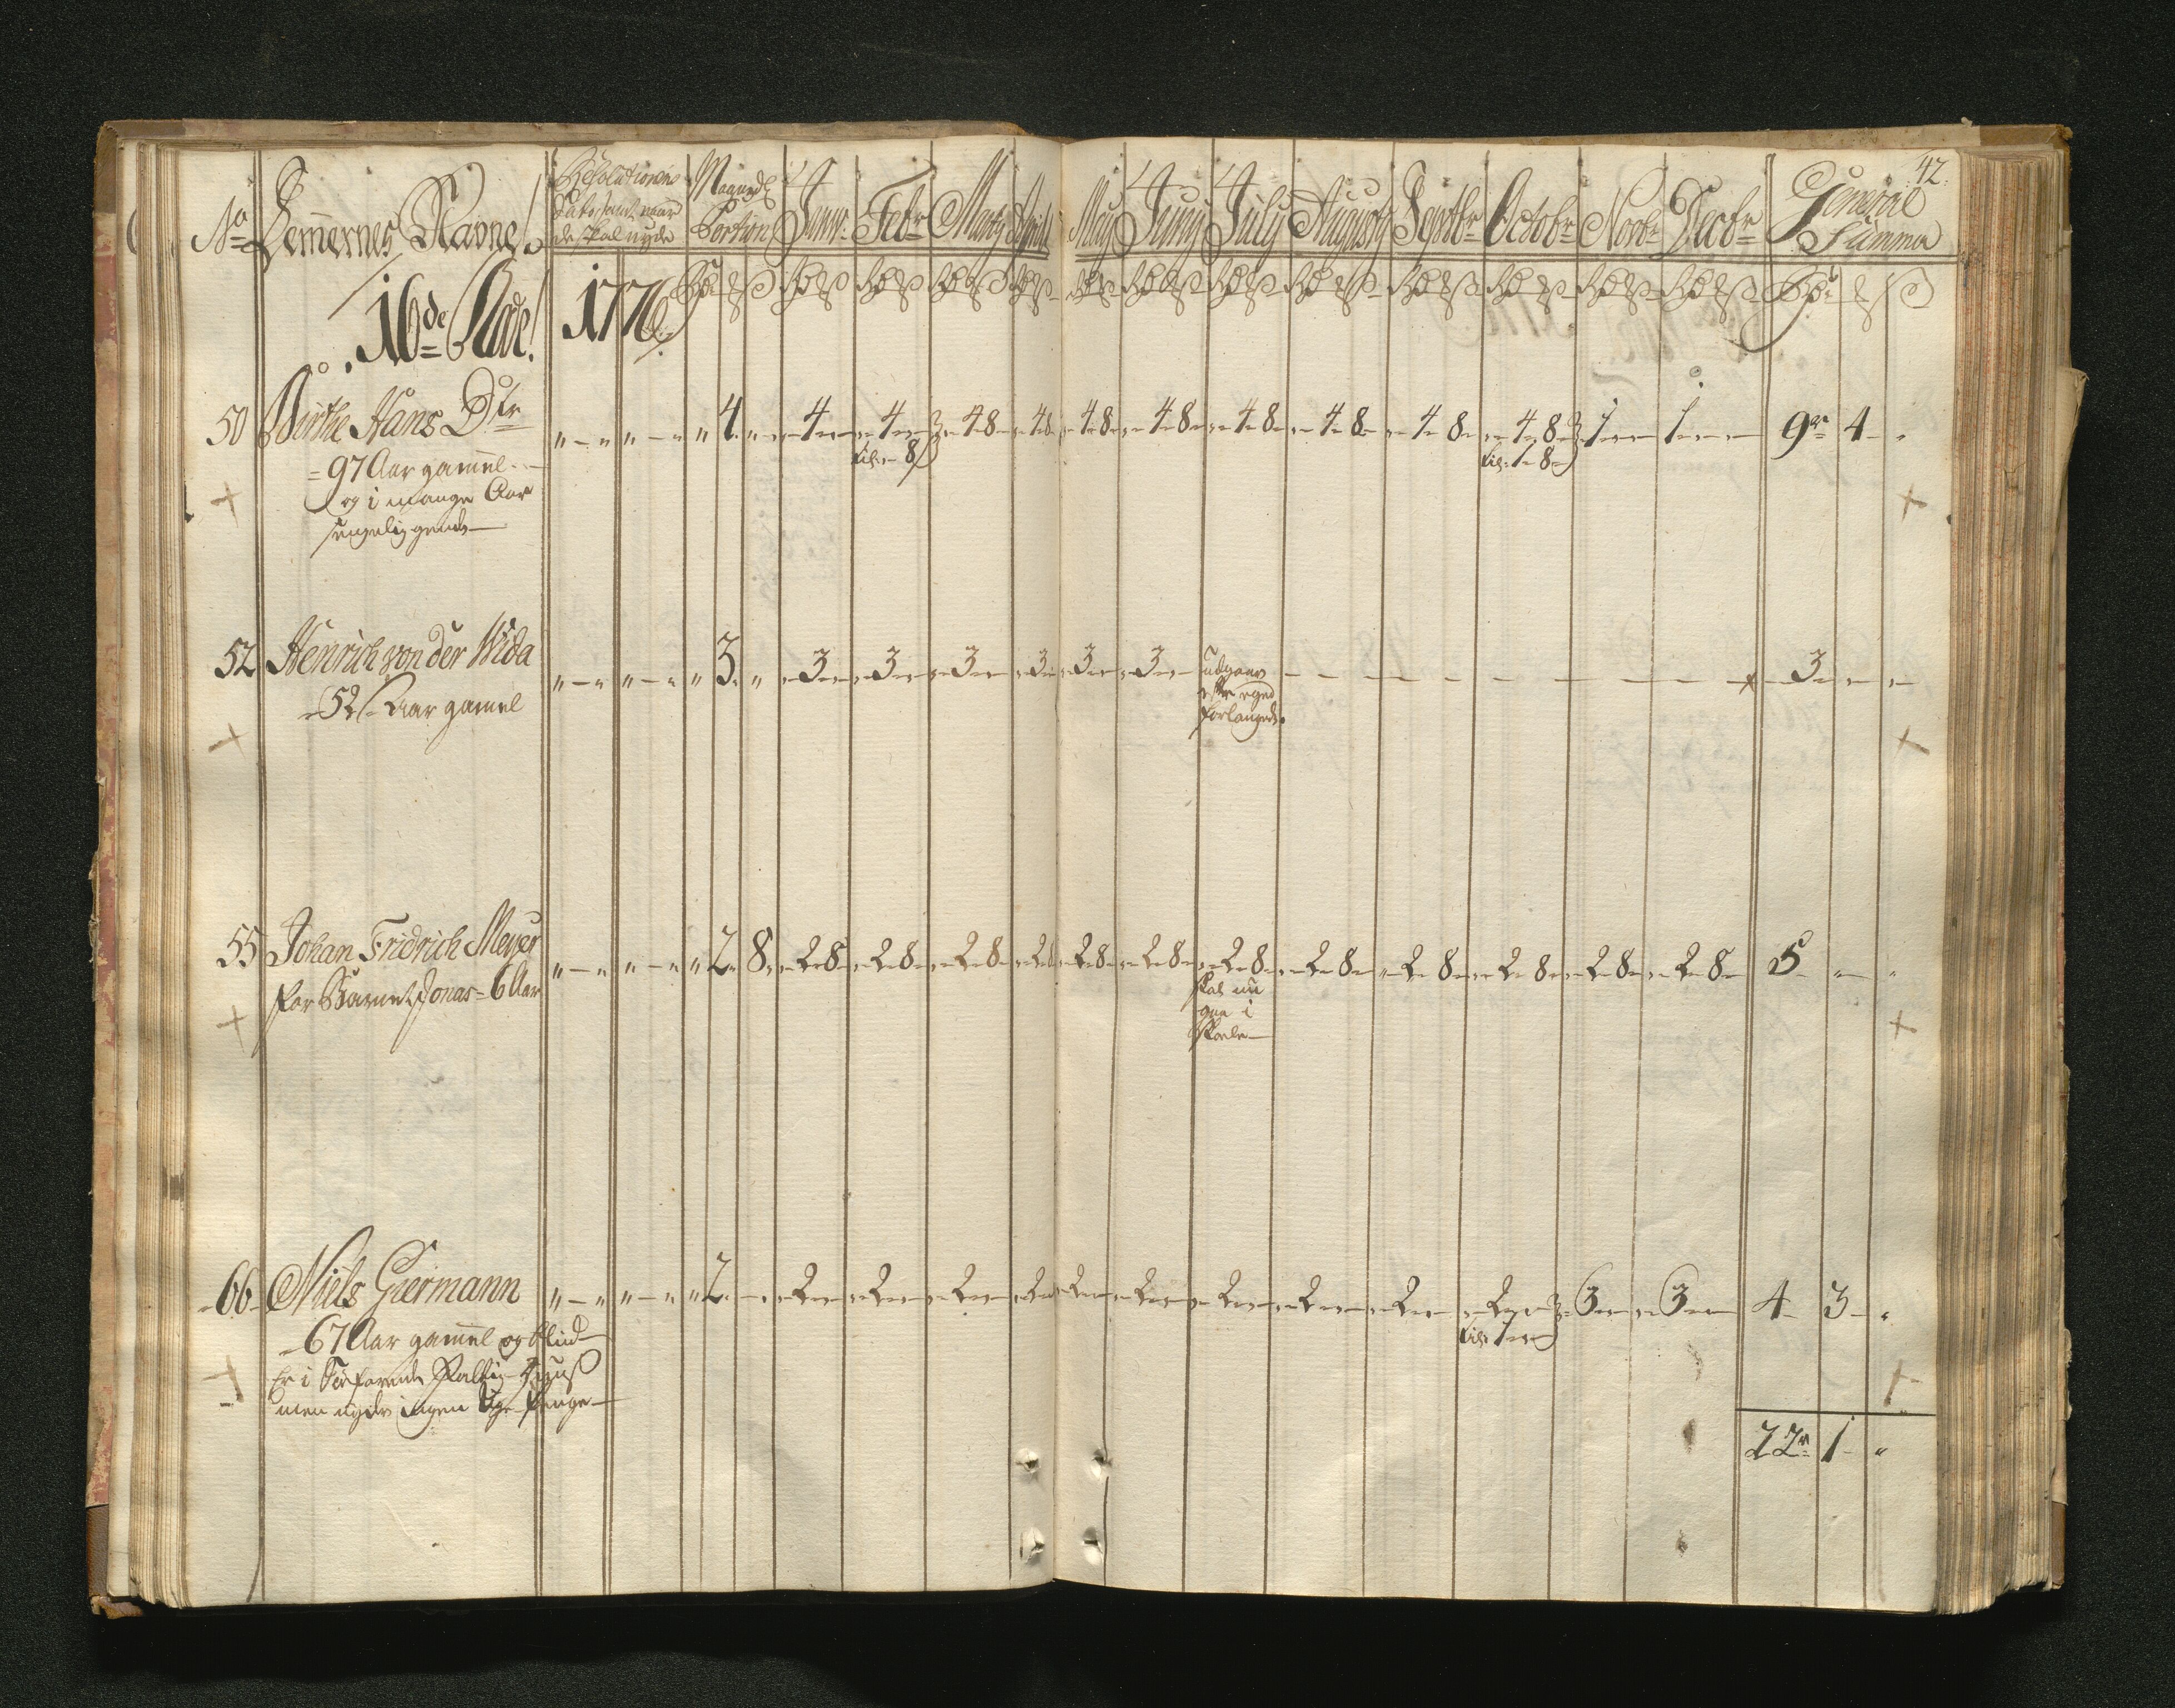 42.
No Lemernes Navne Resolutionens Maaneds Janr: Febr Marty April May Juny July Augusty Septbr Octobr Novbr Decbr General
Dato samt naar Portion Summa
de skal nyde
16de Rode! 1776
50 Birthe Hans Dtr „ — „ „ — „ „ 4. „ 4 4 4 8 4 8 4 8 4 8 4 8 4 8 4 8 4 8 1 1 9 4 „
= 97 Aar gammel til 8 til 1 8
og i mange Aar
sengeliggende
52 Henrich von der Wida „ — „ „ — „ „ 3. „ 3 3 3 3 3 3 udgaar — — — — — 3 „ „
52 Aar gamel efter eget
forlangende
55 Johan Fridrich Meyer „ — „ „ — „ „ 2 8 2 8 2 8 2 8 2 8 2 8 2 8 2 8 2 8 2 8 2 8 2 8 2 8 5 „ „
for Barnet Jonas = 6 Aar skal nu
gaa i
Skole
66 Niels Giermann „ — „ „ — „ „ 2. 2 2 2 2 2 2 2 2 2 2 3 3 4 3 „
67 Aar gammel og blind til 1
Er i
men nyder ingen Uge Penge
22 1 „